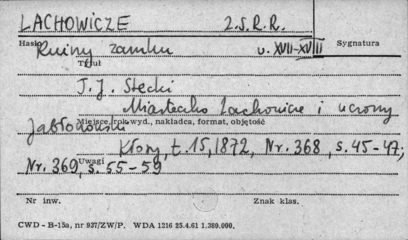 LACHOWICZE Z.S.R.R.
Hasło Ruiny zamku w. XVII-XVIII Sygnatura
Tytuł
T.J. Stecki
Miasteczko Lachowicze i uczony
Jabłonowski
Miejsce, rok wyd., nakładca, format, objętość
Kłosy, t. 15, 1872, Nr. 368, s. 45-47;
Nr. 369, s. 55-59
Uwagi
Nr inw. Znak klas.
CWD - B-15a, nr 937/ZW/P. WDA 1216 25.4.61 1.380.000.